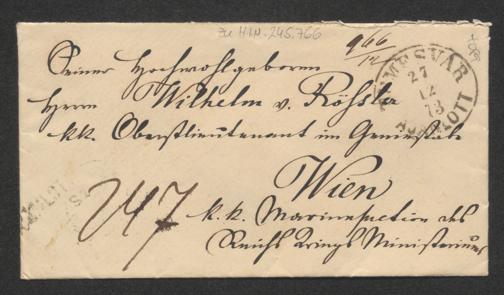 zu H.I.N.-245.766
Seiner Hochwohlgeboren
Herrn Wilhelm v. Rößler
k.k. Oberstlieutenant im Generalstabe
Wien
k.k. Marinesection des
Reichs Kriegs Ministeriums
TEMESVÁR
27
12
73